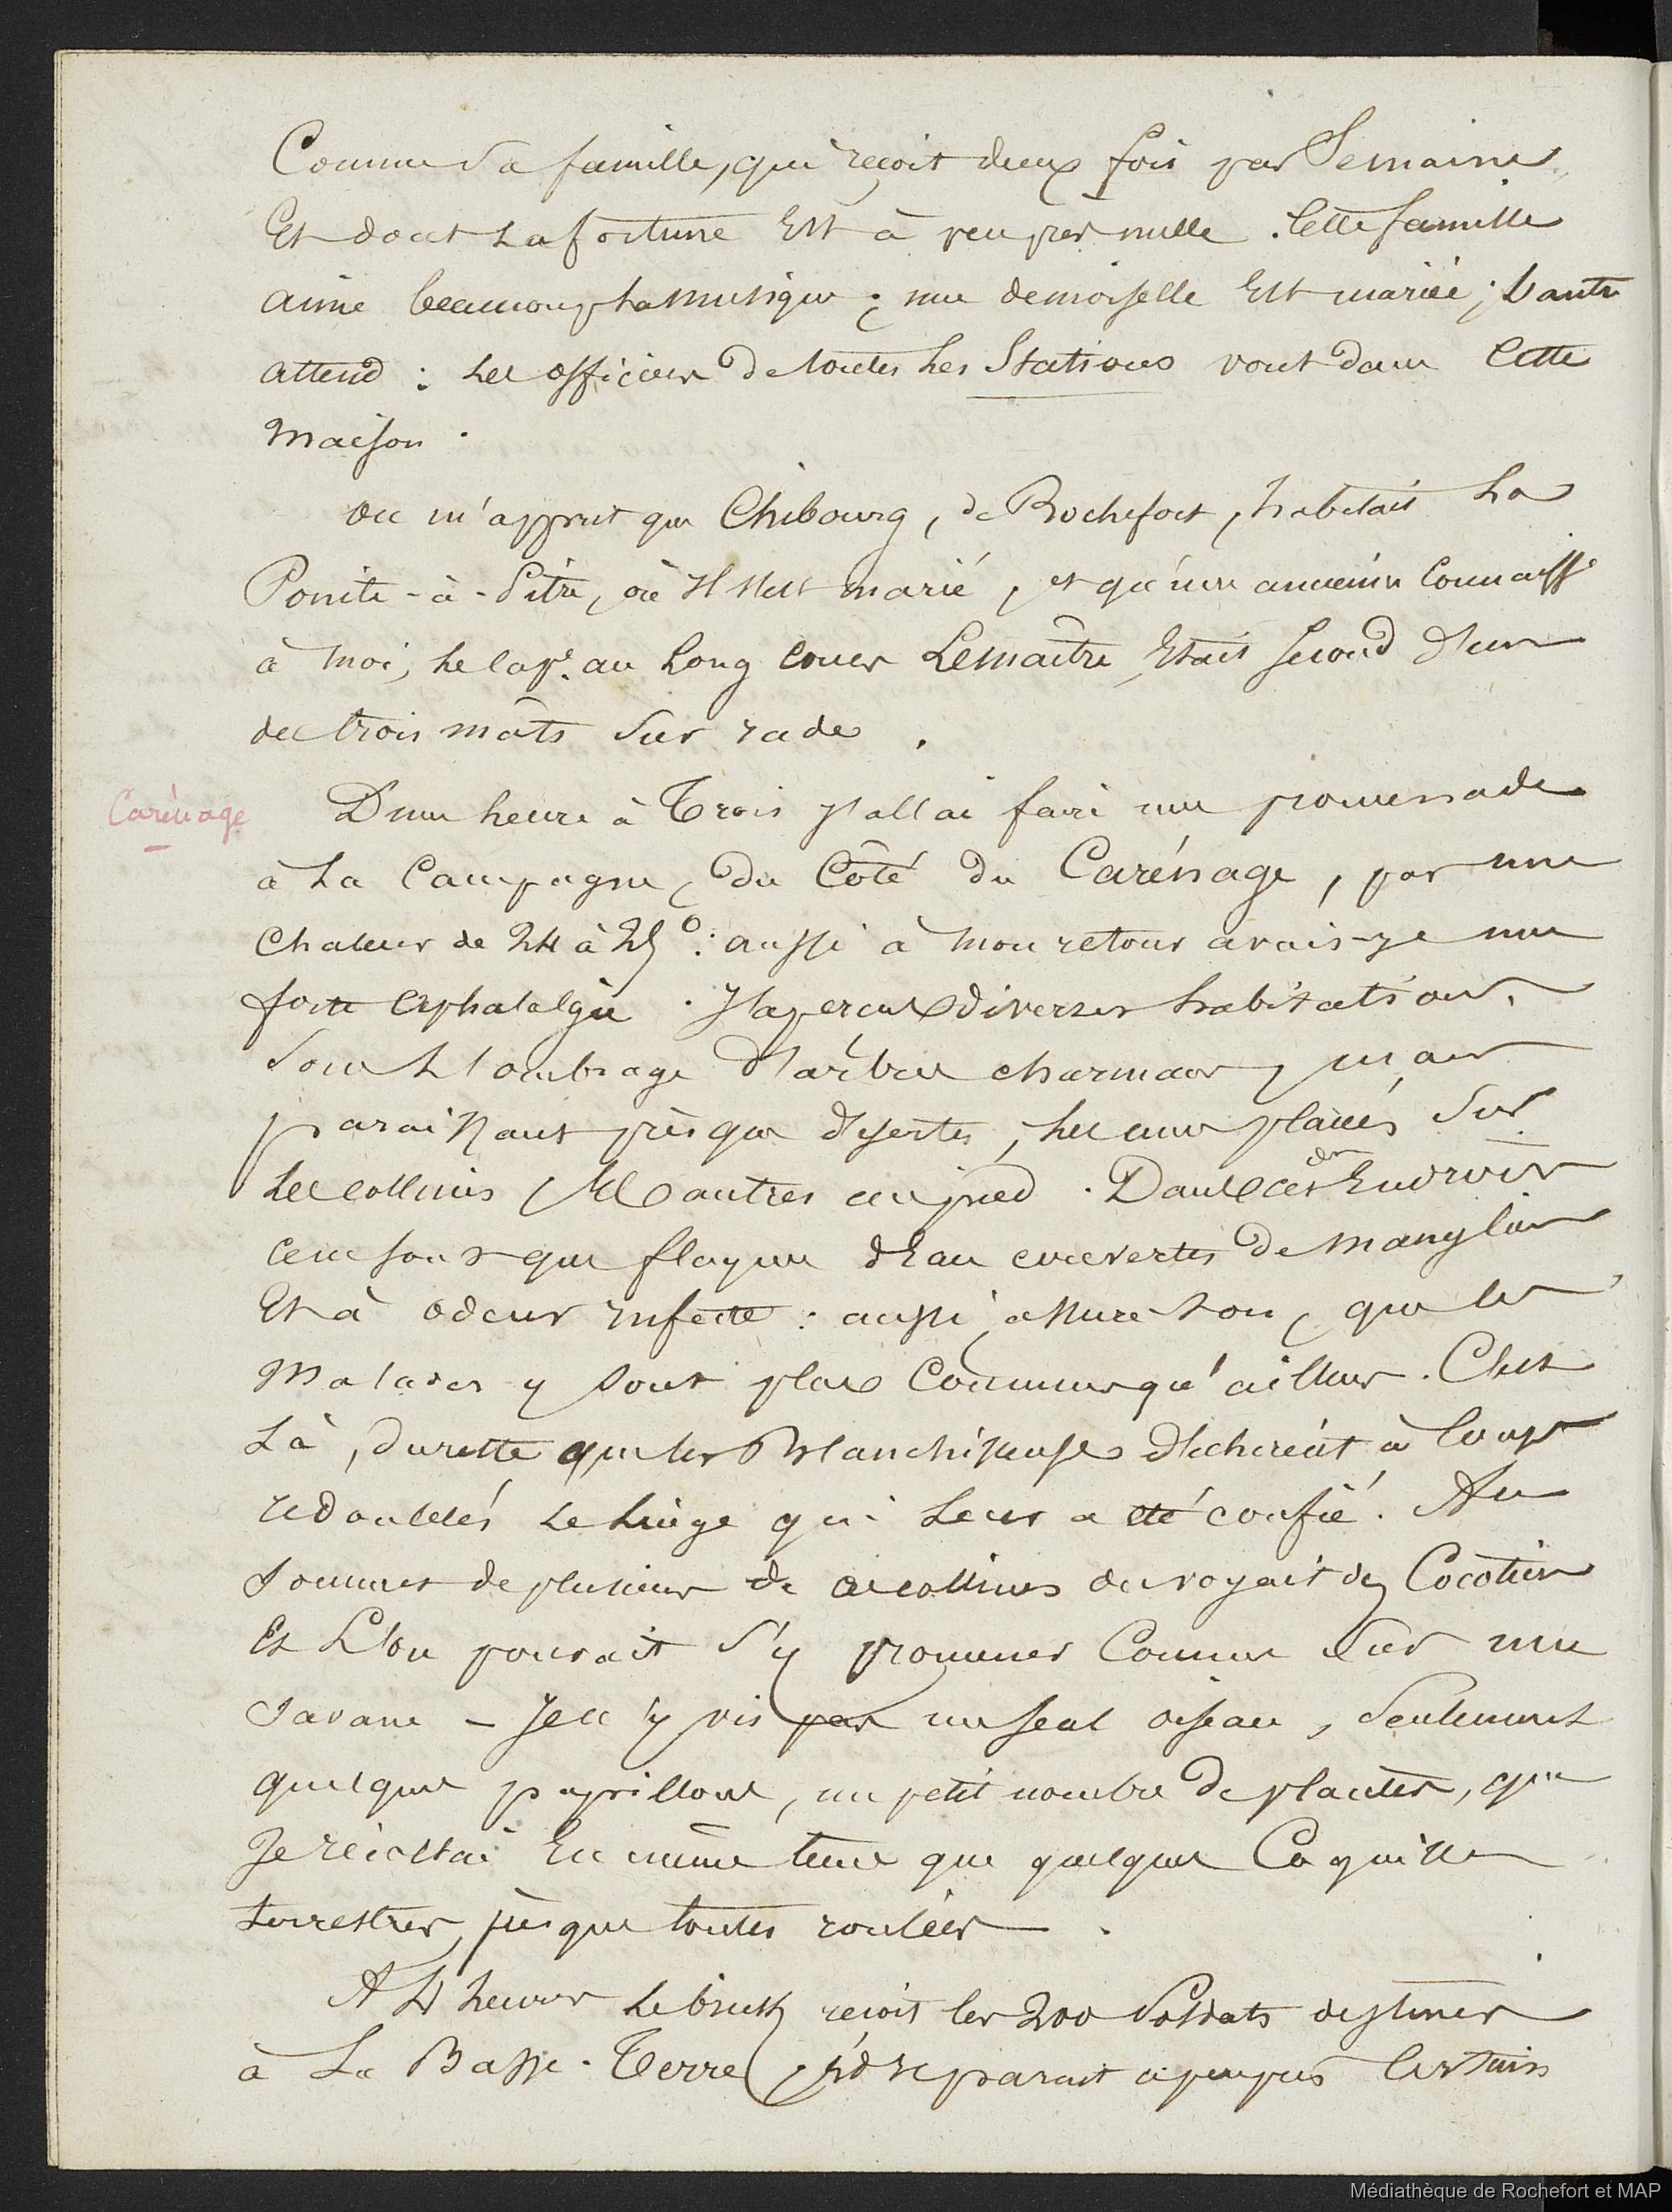 Comme sa famille, qui reçoit deux fois par Semaine
Et dont La fortune Est à peu près nulle. Cette famille
aime beaucoup La musique ; une demoiselle Est mariée ; L'autre
attend : Les officiers de toutes Les Stations vont dans Cette
Maison.
On m'apprit que Chibourg, de Rochefort, habitait La
Pointe-à-Pitre, où Il s'est marié, et qu'une ancienne Connaisse
à Moi, Le Cape. au Long Cours Lemaitre, Etait Second d'un
des trois mâts Sur rade.
Carénage
D'une heure à Trois J'allai faire une promenade
à La Campagne, Du Côté Du Carénage, par une
Chaleur de 24 à 25° : aussi à Mon retour avais-je une
forte Céphalalgie. J'aperçus diverses habitations,
Sous L'ombrage d'arbres charmans, mais
paraissant presque désertes, Les unes placées Sur
Les collines, Les autres au pied. Dans ces derniers Endroits
ce ne sont que flaques d'Eau couvertes De Mangliers
Et à Odeur infecte : aussi, assure-t-on, que les
Malades y sont plus Communs qu'ailleurs. C'est
Là, du reste que les Blanchisseuses déchirent à Coups
redoublés Le Linge qui Leur a été confié. Au
Sommet de plusieurs de ces collines on voyait des Cocotiers
Et L'on pouvait S'y promener Comme Sur une
Savane – Je n'y vis pas un seul oiseau, Seulement
quelques papillons, un petit nombre De plantes, que
Je récoltai En même tems que quelques Coquilles
terrestres, presque toutes roulées.
A 4 heures Le brick reçoit les 200 Soldats destinés
à La Basse-Terre, parait à peu près Certain